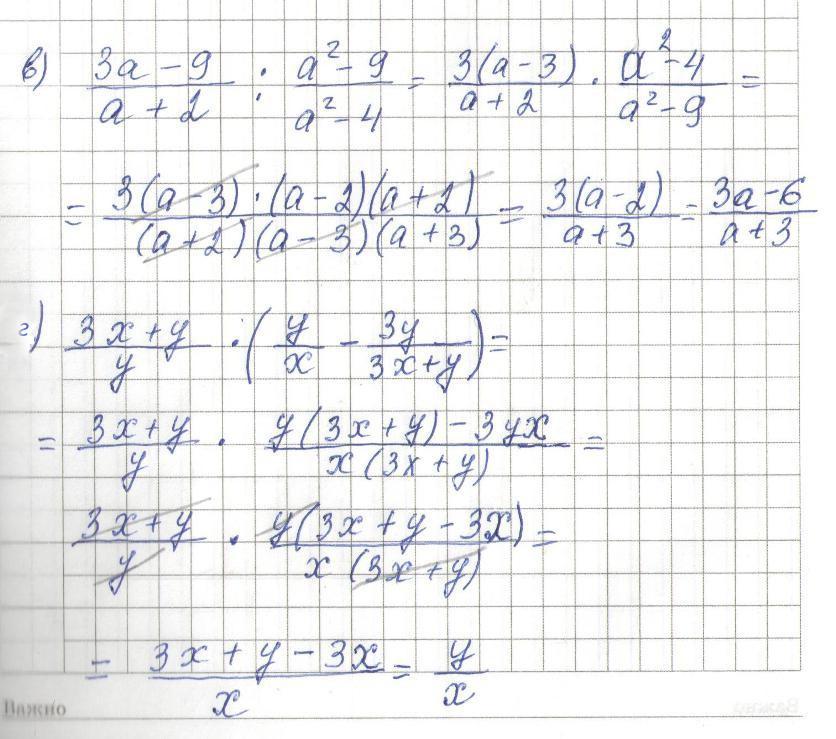 в) (3a - 9)/(a + 2) : (a² - 9)/(a² - 4) = 3(a - 3)/(a + 2) · (a² - 4)/(a² - 9) =
= 3(a - 3) · (a - 2)(a + 2)/((a + 2)(a - 3)(a + 3)) = 3(a - 2)/(a + 3) = (3a - 6)/(a + 3)
г) (3x + y)/y · (y/x - 3y/(3x + y)) =
= (3x + y)/y · (y(3x + y) - 3yx)/(x(3x + y)) =
(3x + y)/y · y(3x + y - 3x)/(x(3x + y)) =
= (3x + y - 3x)/x = y/x
Важно